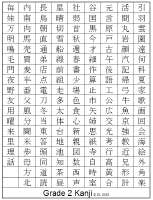 引羽雲園遠何科夏家歌画回会海絵外角楽
活間丸岩顔汽記帰弓牛魚京強教近兄形計
元言原戸古午後語工公広交光考行高黄合
谷国黒今才細作算止市矢姉思紙寺自時室
社弱首秋週春書少場色食心新親図数西声
星晴切雪船線前組走多太体台地池知茶昼
長鳥朝直通弟店点電刀冬当東答頭同道読
内南肉馬売買麦半番父風分聞米歩母方北
毎妹万明鳴毛門夜野友用曜来里理話
Grade 2 Kanji